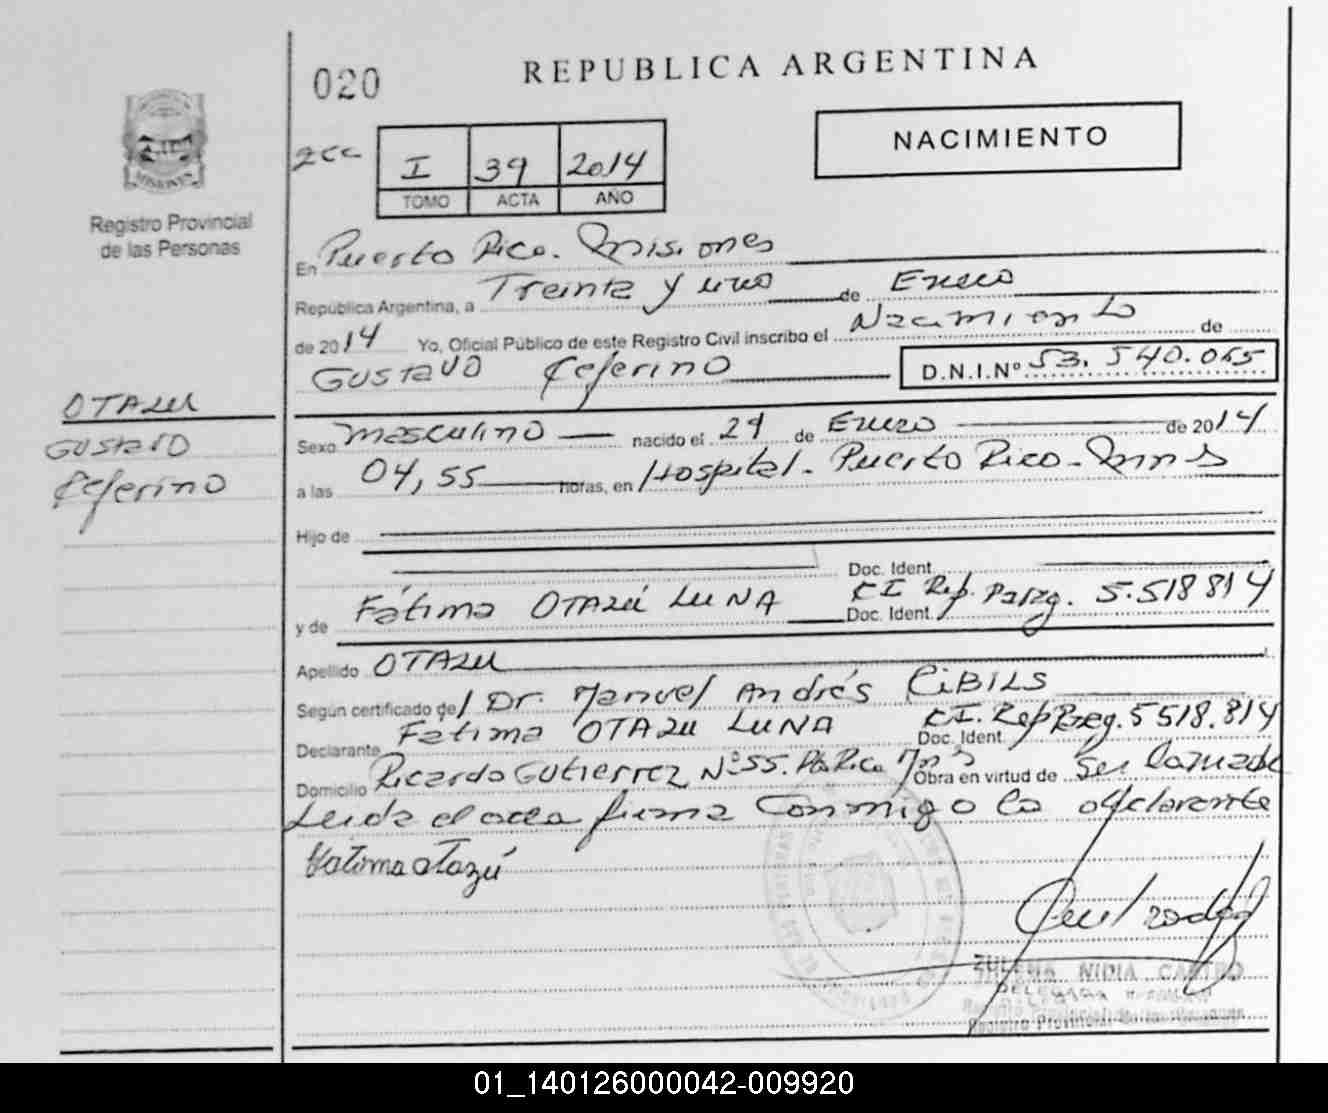 REPUBLICA ARGENTINA
020
NACIMIENTO
I 39 2014
TOMO ACTA AÑO
MISIONES
Registro Provincial
de las Personas
En Puerto Rico. Misiones
República Argentina, a Treinta y uno de Enero
de 2014 Yo, Oficial Público de este Registro Civil inscribo el Nacimiento de
Gustavo Ceferino D.N.I.Nº 53.540.065
OTAZU
Gustavo
Ceferino
Sexo masculino nacido el 29 de Enero de 2014
a las 04,55 horas, en Hospital. Puerto Rico - Mnes
Hijo de
Doc. Ident.
y de Fátima OTAZÚ LUNA Doc. Ident. CI Rep. Parag. 5.518814
Apellido OTAZU
Según certificado de/ Dr. Manuel Andrés CIBILS
Declarante Fatima OTAZU LUNA Doc. Ident. CI. Rep Parag. 5518.814
Domicilio Ricardo GUTIERREZ Nº 55. Pto Rico Mnes Obra en virtud de Ser la madre
Leida el acta firma conmigo la declarante
Fatima otazú
ZULEMA NIDIA CASTRO
Registro Provincial de las Personas
01_140126000042-009920